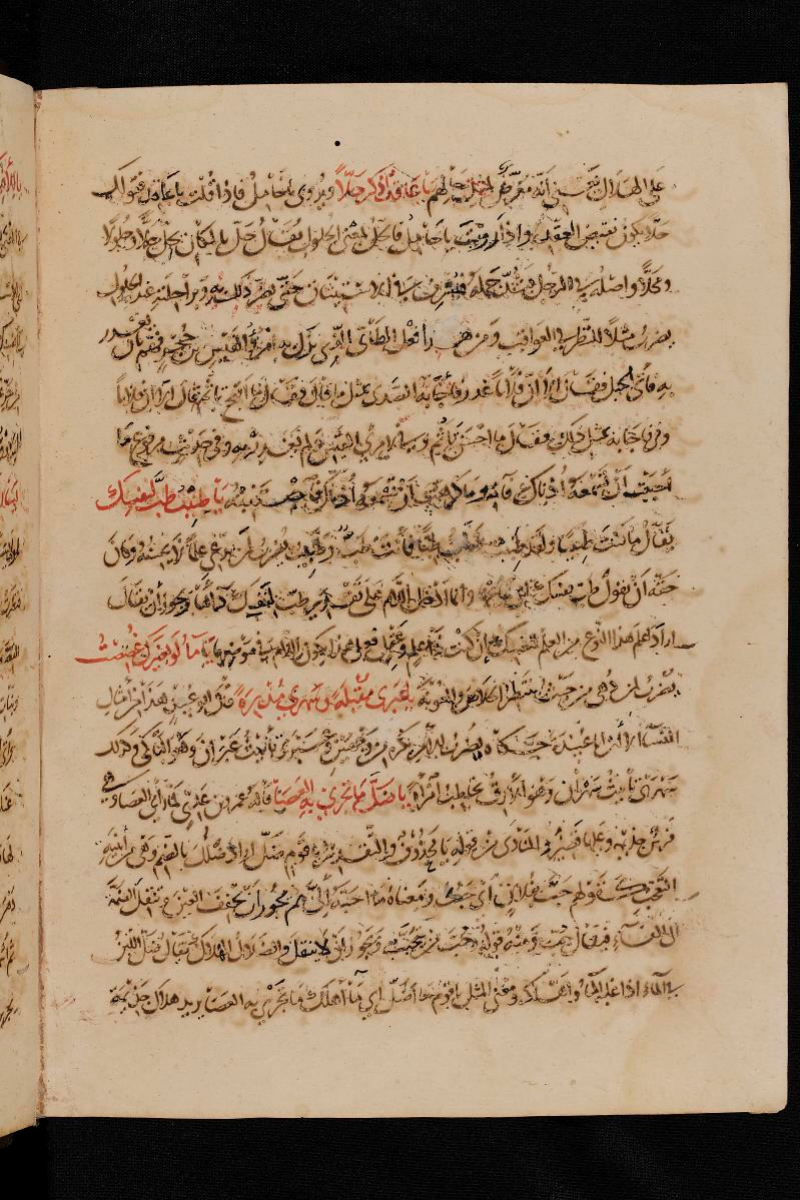 على الهلاك يعني أنه معرض لمثل حالهم يا عاقد اذكر حلا ويروى يا حامل فاذا قلت يا عاقد فقولك
حلا يكون نقيض العقد واذا رويت يا حامل فالحل بمعنى الحلول يقال حل بالمكان يحل حلا وحلولا
ومحلا واصله في الرجل يشد حمله فيسرف في الاستيثاق حتى يضر ذلك به وبراحلته عند الحلول
يضرب مثلا للنظر في العواقب ومن هذا فعل الطائي الذي نزل به امرؤ القيس بن حجر فهم بأن يغدر
به فأتى الجبل فقال ألا ان فلانا غدر فأجابه الصدى بمثل ما قال فقال ما أقبح تا ثم قال ألا ان فلانا
وفى فأجابه بمثل ذلك فقال ما احسن تا ثم وفى لامرئ القيس ولم يغدر به وفي حديث مرفوع ما
أحببت أن تسمعه أذناك فأته وما كرهت أن تسمعه أذناك فاجتنبه يا طبيب طب لنفسك
يقال ما كنت طبيبا ولقد طببت تطب طبا فأنت طب وطبيب يضرب لمن يدعي علما لا يحسنه وكان
حقه أن يقول طب نفسك اي عالجها وانما ادخل اللام على تقدير طب لنفسك داءها ويجوز أن يقال
اراد علم هذا النوع من العلم لنفسك ان كنت ذا علم وعقل فعلى هذا يكون اللام في موضعها يا ماء لو بغيرك غصصت
يضرب لمن دهي من حيث ينتظر الخلاص والمعونة يا عبرى مقبلة وسهرى مدبرة قال ابو عبيد هذا من امثال
النساء الا أن ابا عبيدة حكاه يضرب للامر يكره من وجهين وعبرى تأنيث عبران وهو الباكي وكذلك
سهرى تأنيث سهران وهو الارق يخاطب امرأة يا ضل ما تجري به العصا قاله عمرو بن عدي لما رأى العصا وهي
فرس جذيمة وعليها قصير والمنادى من قوله يا محذوف والتقدير يا قوم ضل اراد ضلل بالضم وهي من أبنية
التعجب كقولهم حب بفلان أي حبب ومعناه ما احبه إلي ثم يجوز أن تخفف العين وتنقل الضمة
الى الفاء فيقال حب ومنه قوله وحب من يتجنب ويجوز أن لا تنقل والضلال الهلاك يقال ضل اللبن
في الماء اذا غلبه الماء واهلكه ومعنى المثل يا قوم ما أضل اي ما أهلك ما تجري به العصا يريد هلاك جذيمة